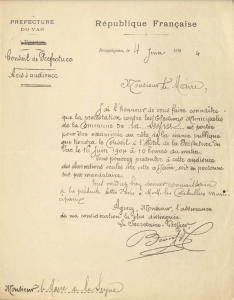 PRÉFECTURE
DU VAR
République Française
Conseil de Préfecture
Avis d'audience
Draguignan, le 4 Juin 190 4
Monsieur le Maire,
J'ai l'honneur de vous faire connaître
que la protestation contre les élections Municipales
de la Commune de La Seyne est portée
pour être examinée au rôle de la séance publique
que tiendra le Conseil à l'Hôtel de la Préfecture du
Var le 10 Juin 1904 à 10 heures du matin.
Vous pouvez présenter à cette audience
des observations orales, soit en personne, soit
par mandataire.
Agréez, Monsieur, l'assurance
de ma considération la plus distinguée.
Le Secrétaire-Greffier,
Monsieur le Maire de La Seyne